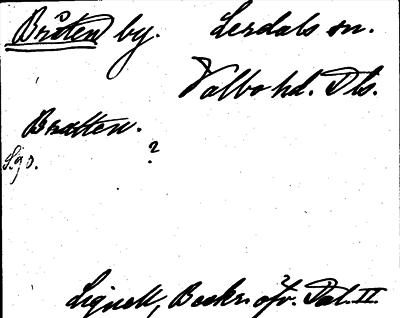 Bråten by. Lerdals sn.
Valbo hd. Dls.
Bratten.
?
Lignell, Beskr. öfv. Dal. II